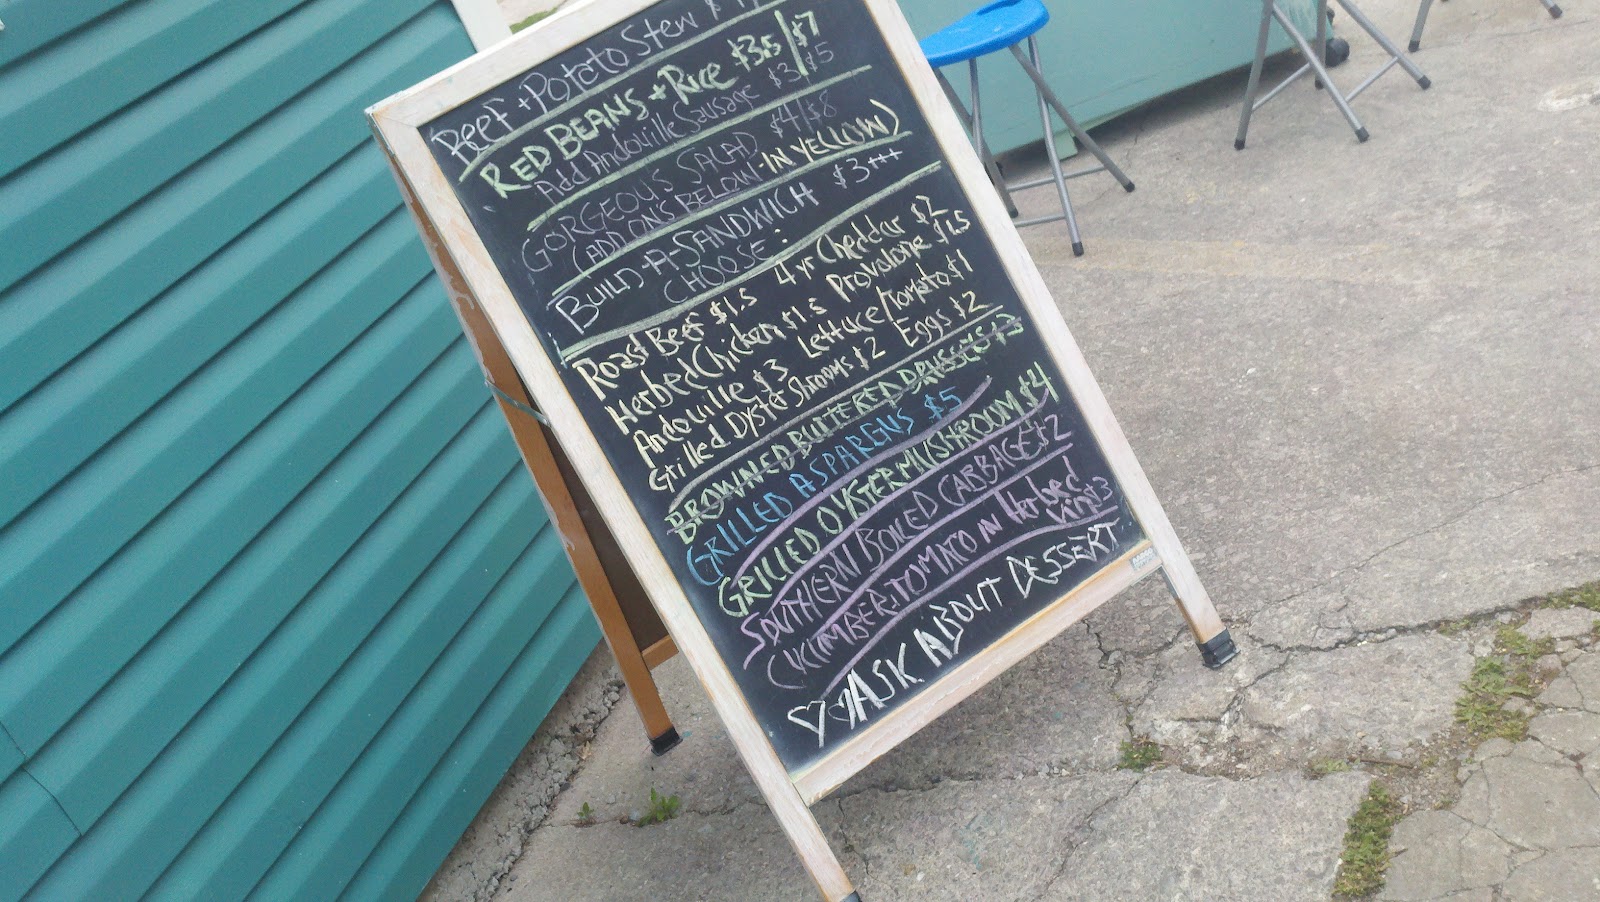 Beef + Potato Stew $
RED BEANS + Rice $3.5/$7
Add Andouille Sausage $3/$5
GORGEOUS SALAD $4/$8
(ADD ONS BELOW IN YELLOW)
BUILD-A-SANDWICH $3+++
CHOOSE:
Roast Beef $1.5 4yr Cheddar $2
Herbed Chicken $1.5 Provolone $1.5
Andouille $3 Lettuce/Tomato $1
Grilled Oyster Shrooms $2 Eggs $2
BROWNED BUTTERED BRUSSELS $3
GRILLED ASPARENUS $5
GRILLED OYSTER MUSHROOM $4
SOUTHERN BOILED CABBAGE $2
CUCUMBER+TOMATO IN Herbed
Vin $3
♡ ASK ABOUT DESSERT